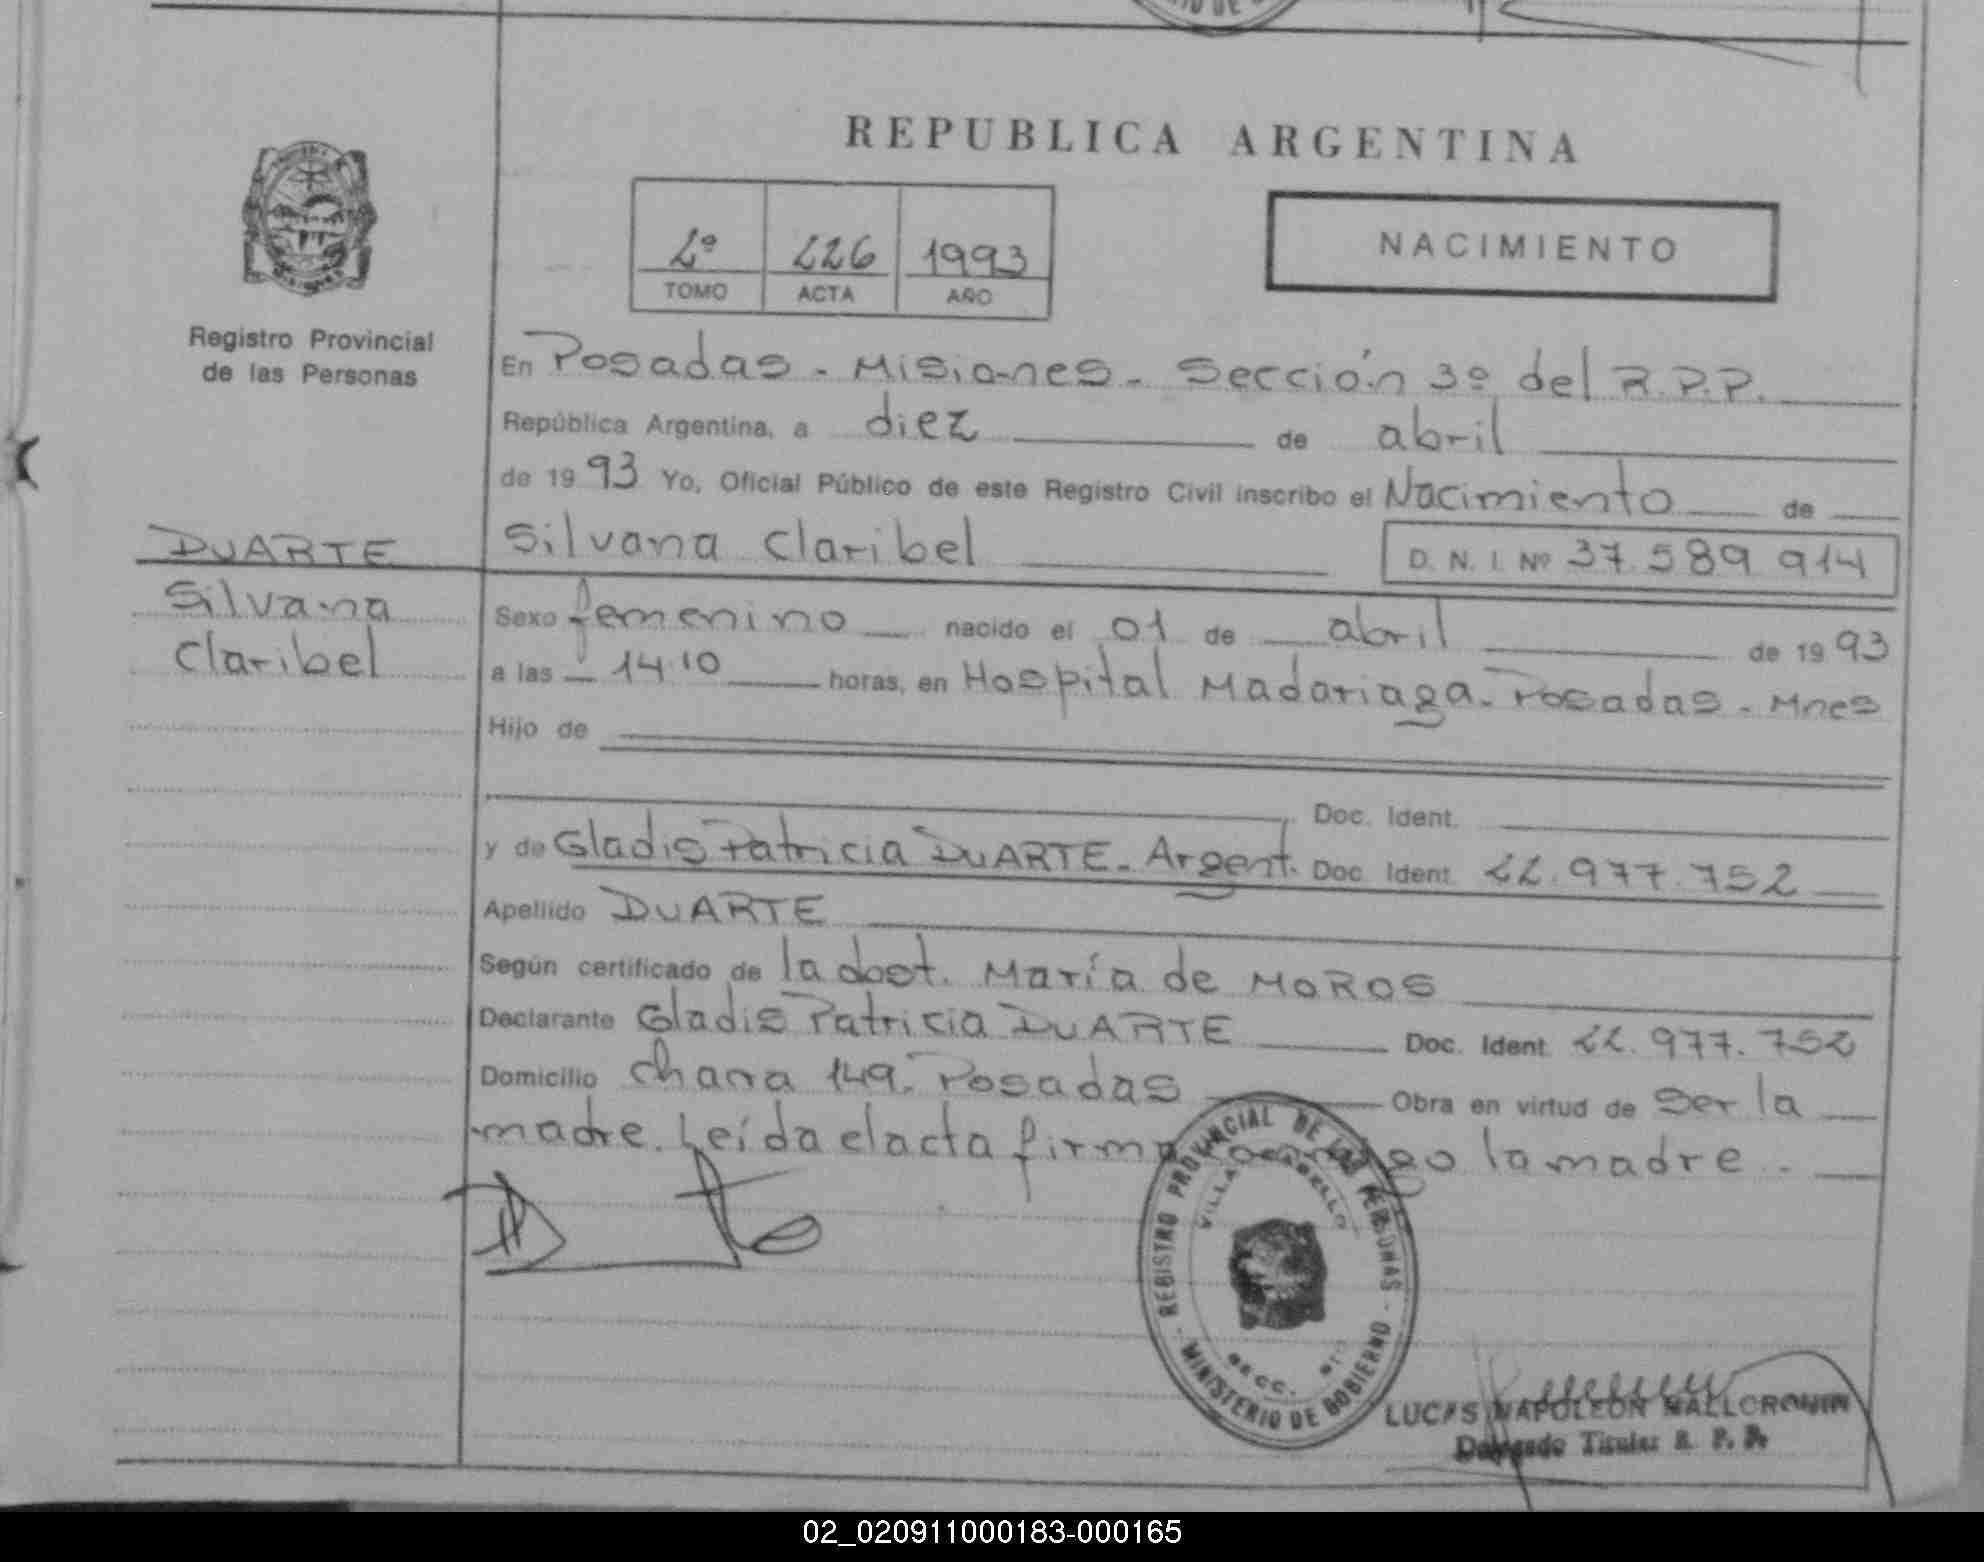 REPUBLICA ARGENTINA
2º 226 1993
TOMO ACTA AÑO
NACIMIENTO
Registro Provincial
de las Personas
En Posadas - Misiones - Sección 3º del R.P.P.
República Argentina, a diez de abril
de 1993 Yo, Oficial Público de este Registro Civil inscribo el Nacimiento de
Silvana Claribel D. N. I. Nº 37.589.914
DUARTE
Silvana
Claribel
Sexo femenino nacido el 01 de abril de 1993
a las 14.10 horas, en Hospital Madariaga - Posadas - Mnes
Hijo de
Doc. Ident.
y de Gladis Patricia DUARTE - Argent. Doc. Ident. 22.977.752
Apellido DUARTE
Según certificado de la obst. María de MOROS
Declarante Gladis Patricia DUARTE Doc. Ident. 22.977.752
Domicilio Chacra 149. Posadas Obra en virtud de ser la
madre. Leída el acta firma conmigo la madre.-
REGISTRO PROVINCIAL DE LAS PERSONAS
MINISTERIO DE GOBIERNO
VILLA
SECC.
LUCAS NAPOLEON
Delegado Titular R. P. P.
02_020911000183-000165